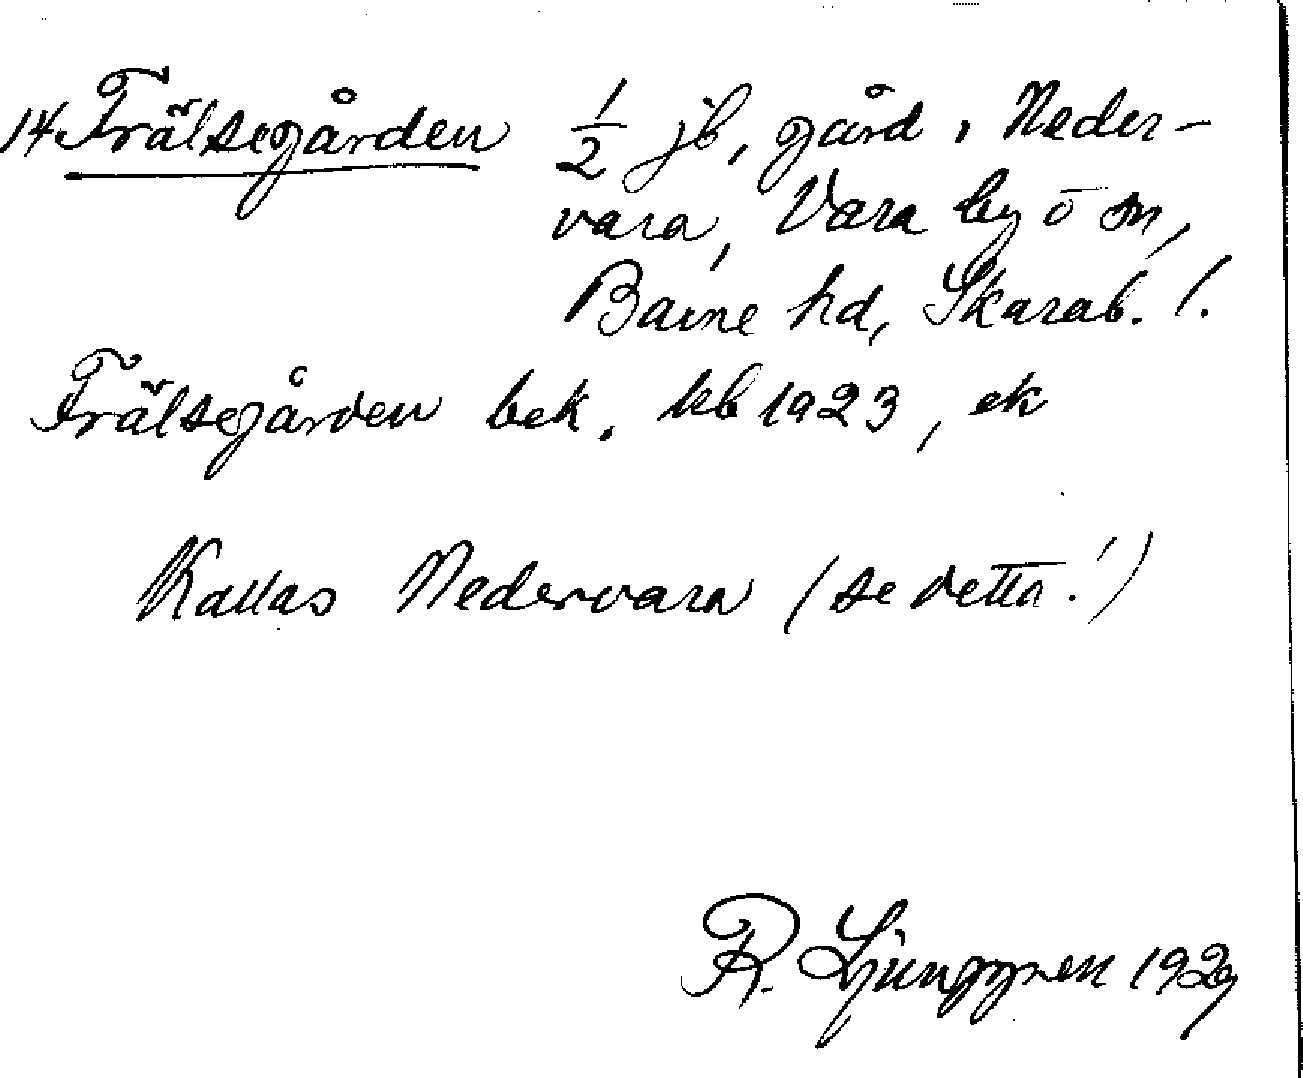 14 Frälsegården ½ jb, gård, Neder-
vara, Vara by o sn,
Barne hd, Skarab. l.
Frälsegården bek. kb 1923, ek
Kallas Nedervara (se detta!)
R. Ljunggren 1929